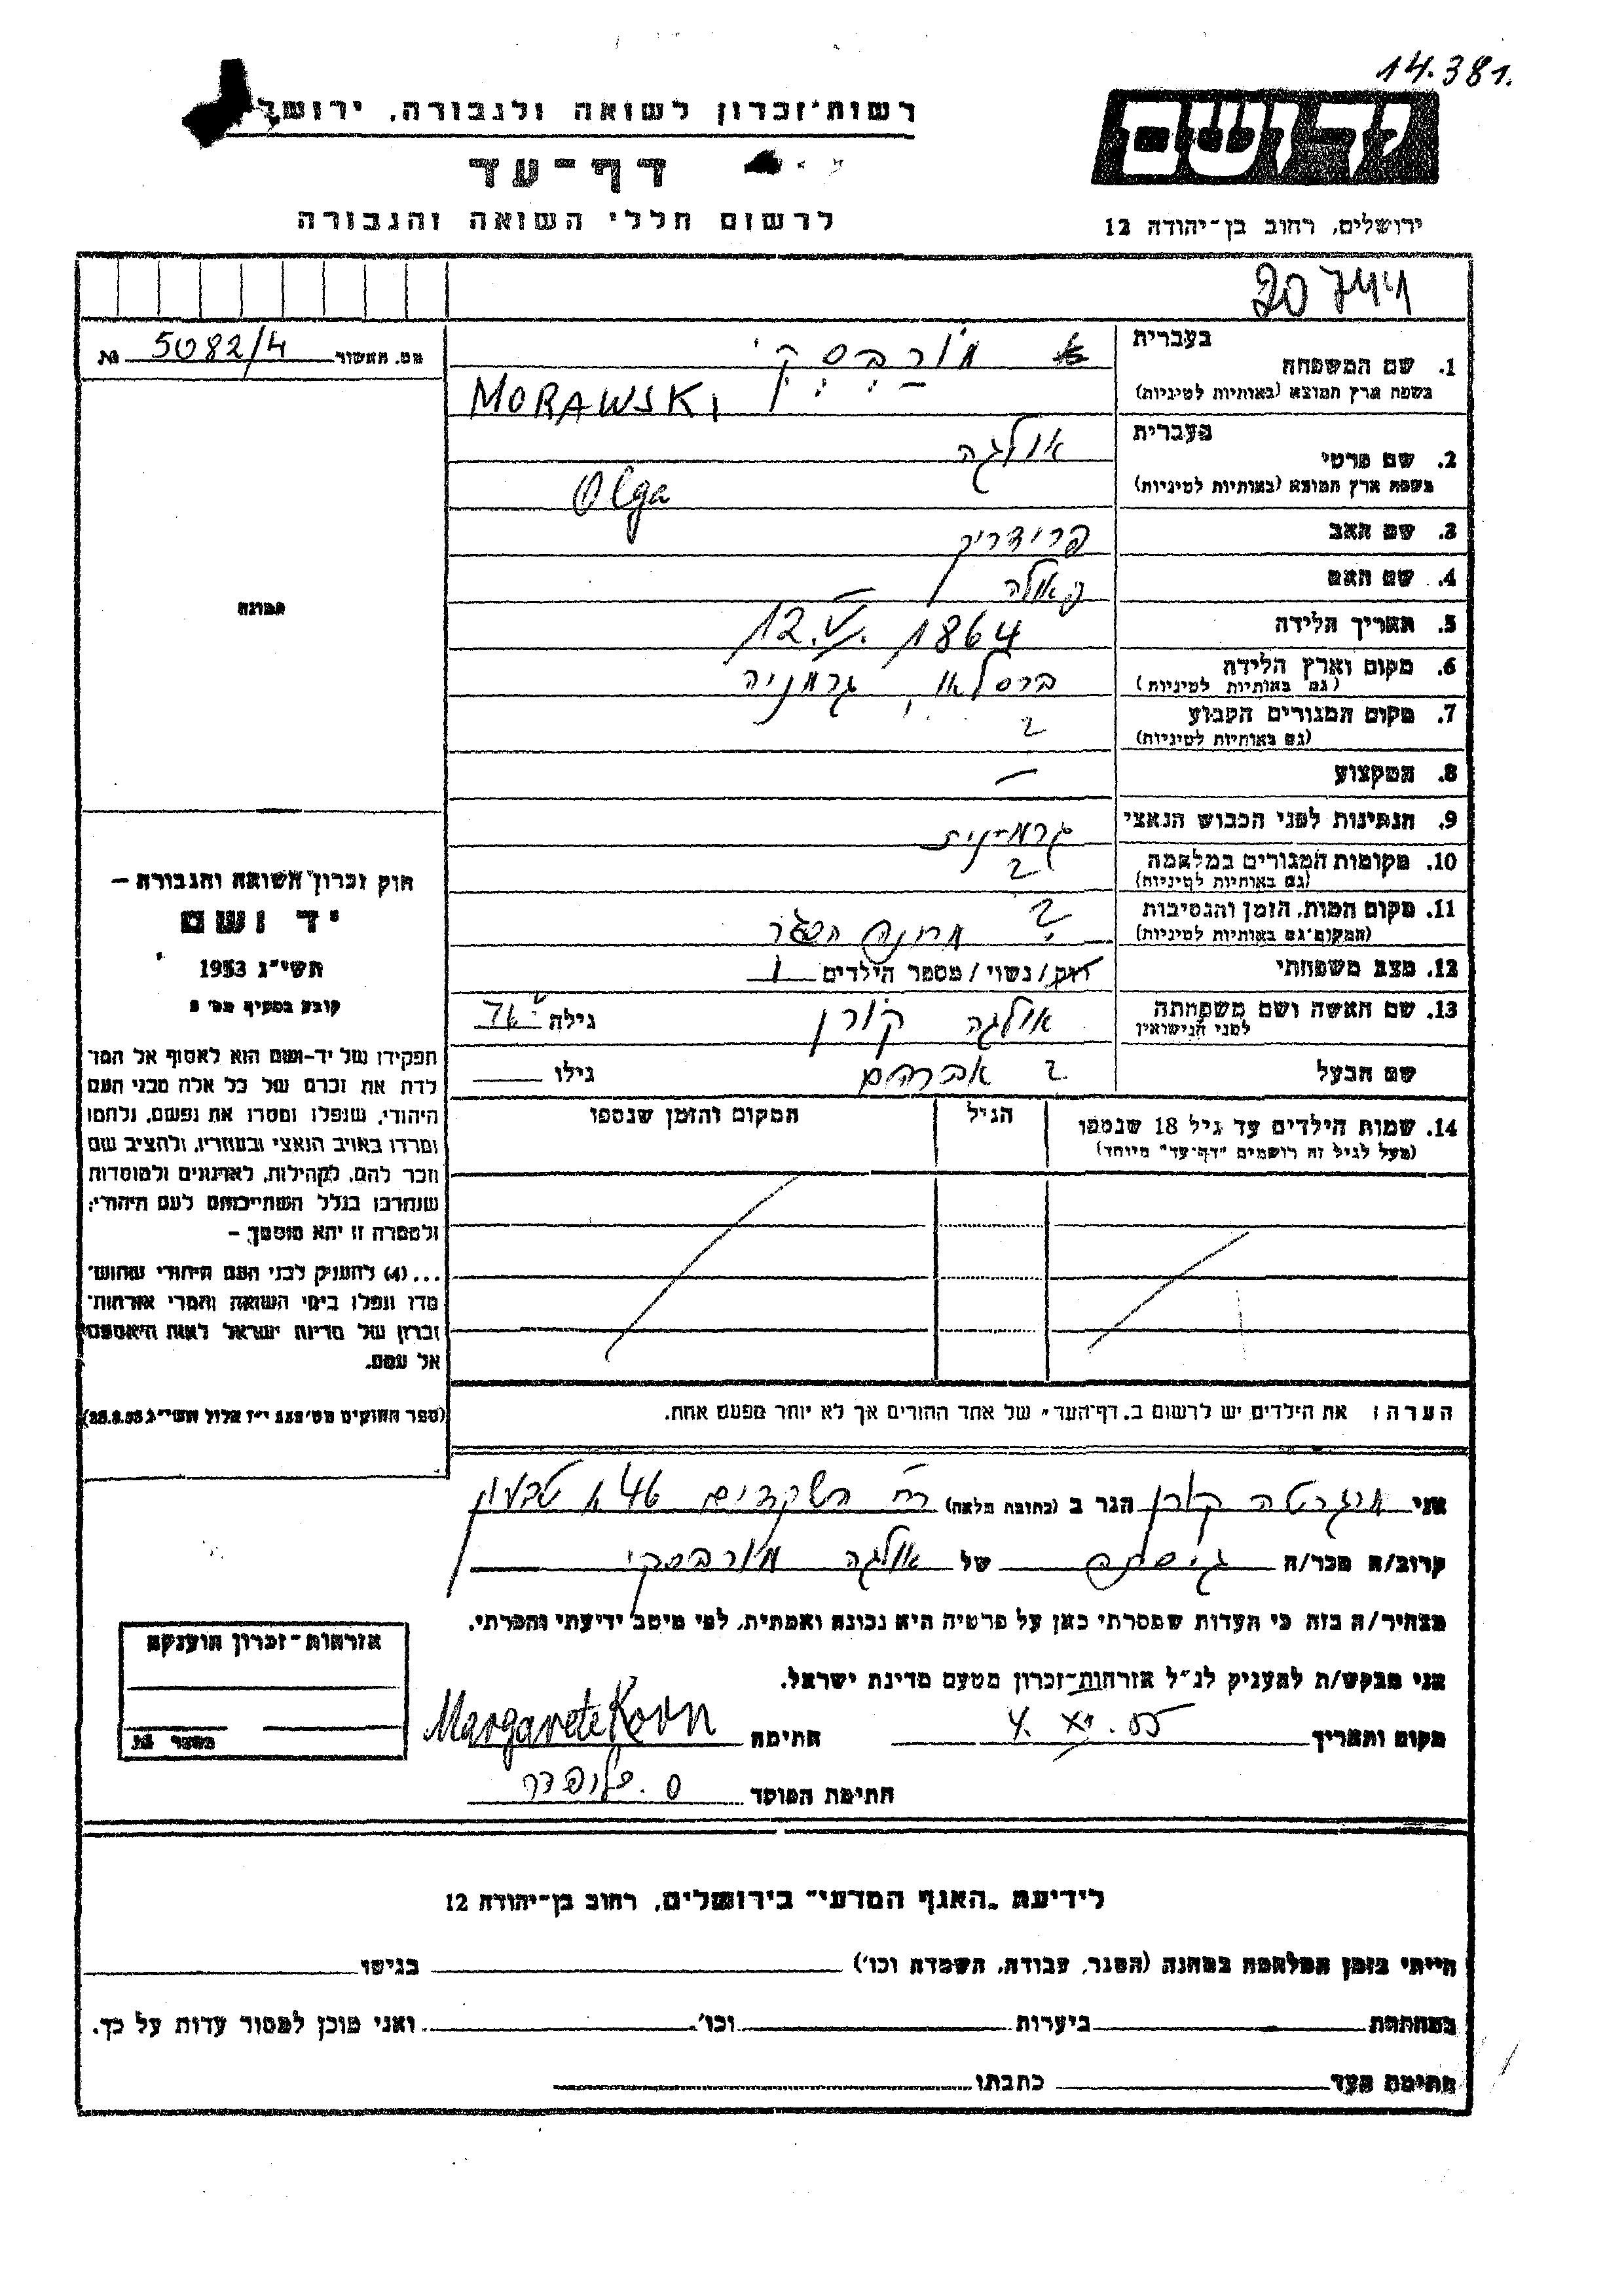 14.381.
רשות־זכרון לשואה ולגבורה, ירושל
דף־עד
לרשום חללי השואה והגבורה
יד ושם
ירושלים, רחוב בן־יהודה 12
20744
מס. האשור 5082/4 №
תמונה
בעברית
1. שם המשפחה מורבסקי
בשפת ארץ המוצא (באותיות לטיניות) MORAWSKI
בעברית
2. שם פרטי אולגה
בשפת ארץ המוצא (באותיות לטיניות) Olga
3. שם האב פרידריך
4. שם האם פאולה
5. תאריך הלידה 12.V.1864
6. מקום וארץ הלידה ברסלאו, גרמניה
(גם באותיות לטיניות)
7. מקום המגורים הקבוע ?
(גם באותיות לטיניות)
8. המקצוע —
9. הנתינות לפני הכבוש הנאצי גרמנית
10. מקומות המגורים במלחמה ?
(גם באותיות לטיניות)
11. מקום המות, הזמן והנסיבות ?
(המקום גם באותיות לטיניות) מחנה הסגר
12. מצב משפחתי רווק/נשוי/מספר הילדים 1
13. שם האשה ושם משפחתה אולגה קורן גילה 76
לפני הנישואין
שם הבעל אברהם ? גילו
14. שמות הילדים עד גיל 18 שנספו הגיל המקום והזמן שנספו
(מעל לגיל זה רושמים "דף־עד" מיוחד)
הערה: את הילדים יש לרשום ב„דף־העד" של אחד ההורים אך לא יותר מפעם אחת.
חוק זכרון השואה והגבורה –
יד ושם
תשי"ג 1953
קובע בסעיף מס' 2
תפקידו של יד־ושם הוא לאסוף אל המו־
לדת את זכרם של כל אלה מבני העם
היהודי, שנפלו ומסרו את נפשם, נלחמו
ומרדו באויב הנאצי ובעוזריו, ולהציב שם
וזכר להם, לקהילות, לארגונים ולמוסדות
שנחרבו בגלל השתייכותם לעם היהודי;
ולמטרה זו יהא מוסמך –
...(4) להעניק לבני העם היהודי שהוש־
מדו ונפלו בימי השואה והמרי אזרחות־
זכרון של מדינת ישראל לאות היאספם
אל עמם.
(ספר החוקים מס' 132 י"ז אלול תשי"ג 28.8.53)
אני מרגרטה קורן הגר ב (כתובת מלאה) רח השקדים 46 טבעון
קרוב/ה מכר/ה גיסתה של אולגה מורבסקי
מצהיר/ה בזה כי העדות שמסרתי כאן על פרטיה היא נכונה ואמתית, לפי מיטב ידיעתי והכרתי.
אני מבקש/ת להעניק לנ"ל אזרחות־זכרון מטעם מדינת ישראל.
מקום ותאריך 4.XI.55 חתימה Margarete Korn
חתימת המוסד
אזרחות־זכרון הוענקה
מספר №
לידיעת „האגף המדעי" בירושלים, רחוב בן־יהודה 12
הייתי בזמן המלחמה במחנה (הסגר, עבודה, השמדה וכו') בגיטו
במחתרת ביערות וכו' ואני מוכן למסור עדות על כך.
חתימת העד כתבתו